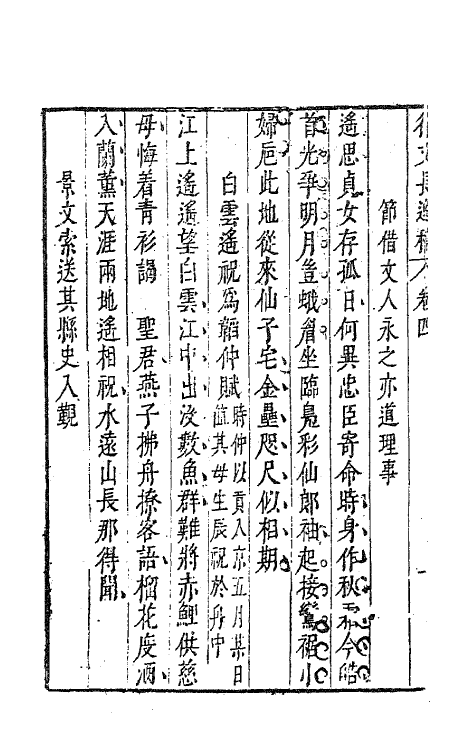 徐文長逸稿 卷四
節借文人永之亦道理事
遥思貞女存孤日何異忠臣寄命時身作秋霜今皓
首光爭明月豈蛾眉坐臨鳬彩仙郎袖起接鸞裾小
婦巵此地從來仙子宅金壘咫尺似相期
白雲遥祝為韜仲賦時仲以貢入京五月某日值其母生辰祝於舟中
江上遥遥望白雲江中出沒數魚群難將赤鯉供慈
母悔着青衫謁 聖君燕子拂舟撩客語榴花度酒
入蘭薰天涯兩地遥相祝水遠山長那得聞
景文索送其縣史入覲